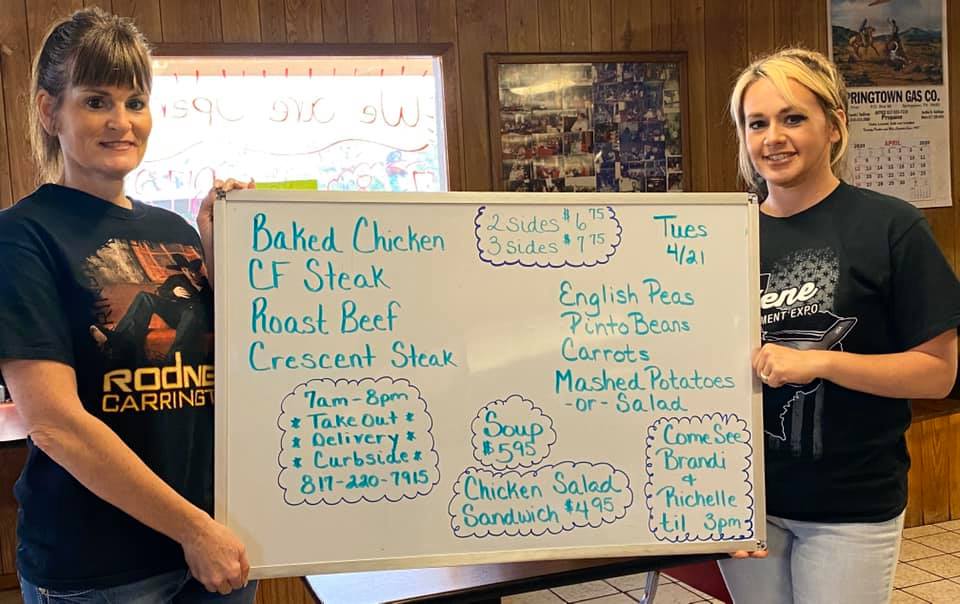 Baked Chicken
CF Steak
Roast Beef
Crescent Steak
2 sides $6 75
3 sides $7 75
Tues
4/21
English Peas
Pinto Beans
Carrots
Mashed Potatoes
-or- Salad
7am-8pm
* Take Out *
* Delivery *
* Curbside *
817-220-7915
Soup
$5 95
Chicken Salad
Sandwich $4 95
Come See
Brandi
&
Richelle
til 3pm
We are open
RODNE
CARRINGT
ene
MENT EXPO
PRINGTOWN GAS CO.
Propane
2020
APRIL
2020